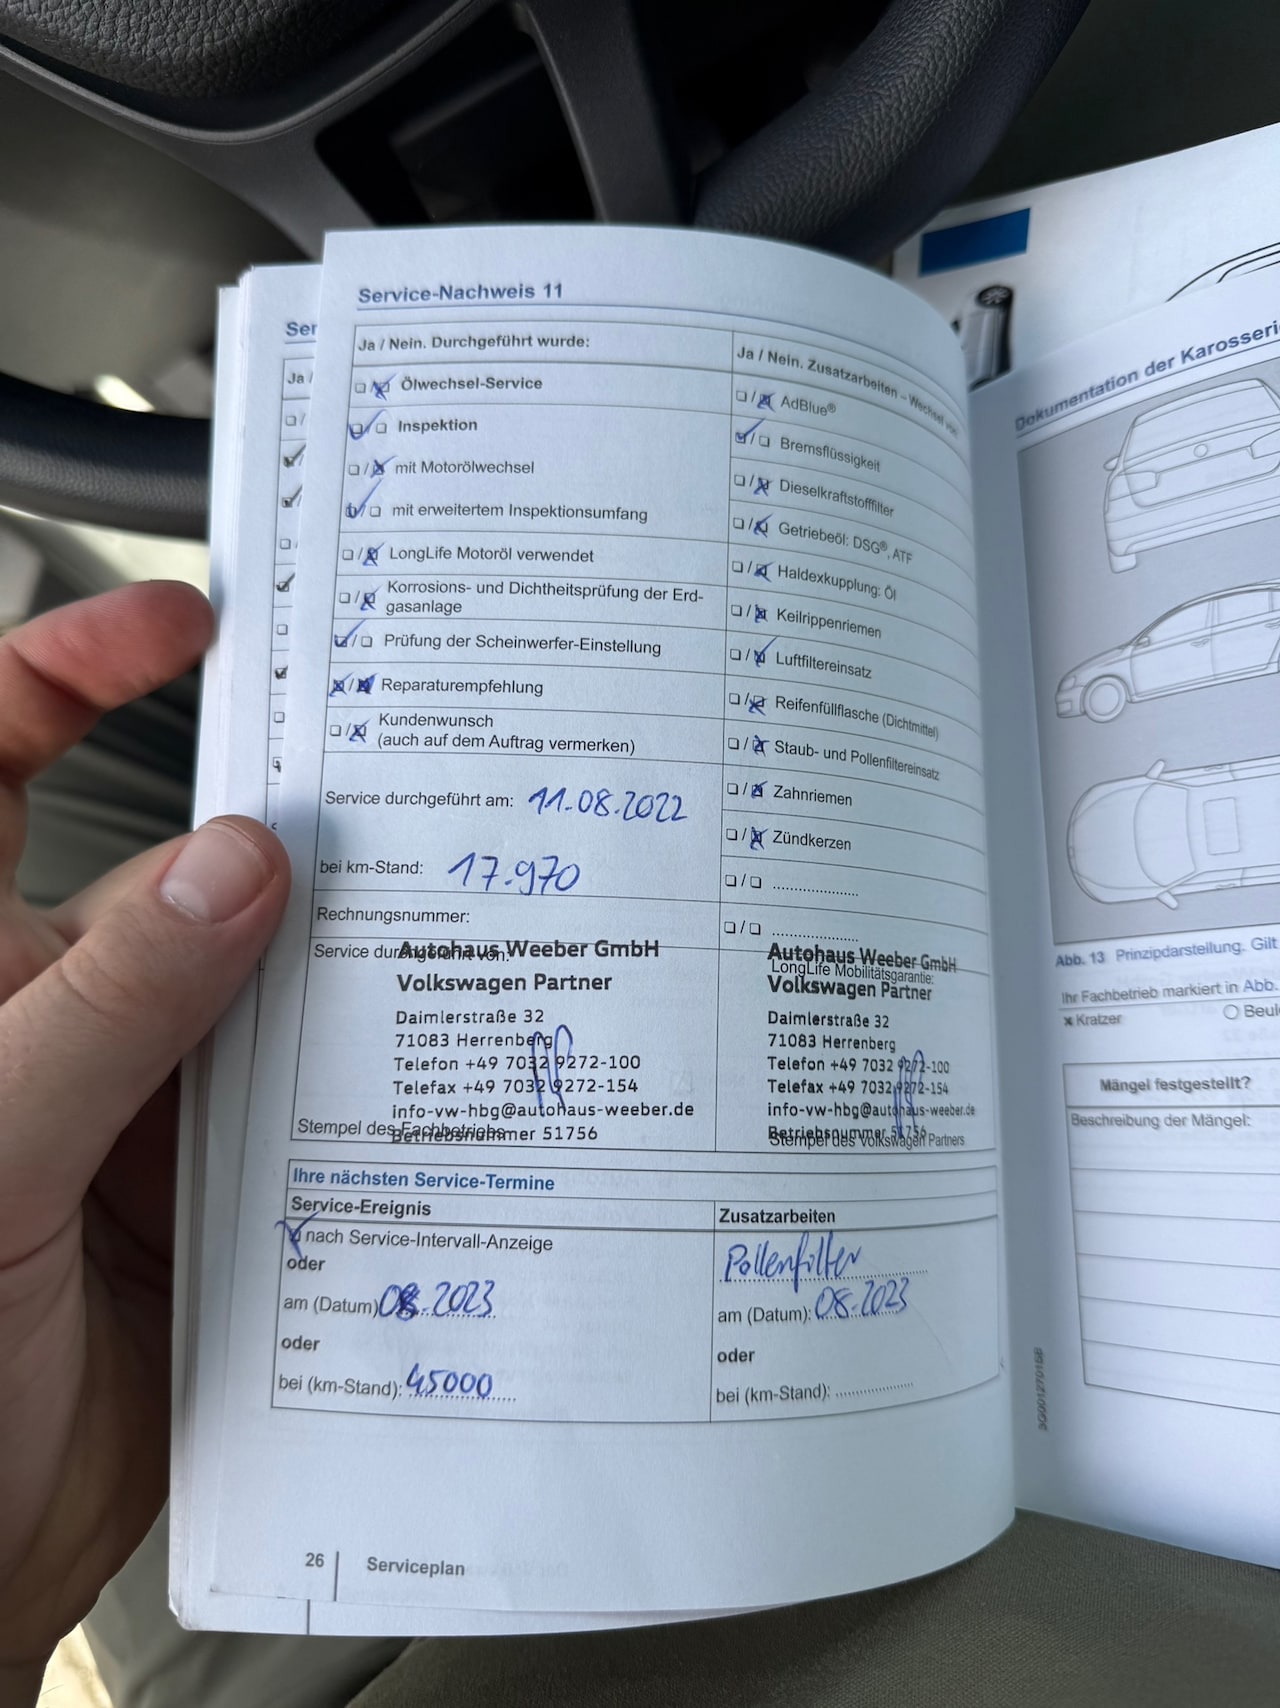 Service-Nachweis 11
Ja / Nein. Durchgeführt wurde:
Ölwechsel-Service
Inspektion
mit Motorölwechsel
mit erweitertem Inspektionsumfang
LongLife Motoröl verwendet
Korrosions- und Dichtheitsprüfung der Erd-
gasanlage
Prüfung der Scheinwerfer-Einstellung
Reparaturempfehlung
Kundenwunsch
(auch auf dem Auftrag vermerken)
Service durchgeführt am: 11.08.2022
bei km-Stand: 17.970
Rechnungsnummer:
Service durchgeführt von:
Autohaus Weeber GmbH
Volkswagen Partner
Daimlerstraße 32
71083 Herrenberg
Telefon +49 7032 9272-100
Telefax +49 7032 9272-154
info-vw-hbg@autohaus-weeber.de
Betriebsnummer 51756
Stempel des Fachbetriebs
Ja / Nein. Zusatzarbeiten – Wechsel von:
AdBlue®
Bremsflüssigkeit
Dieselkraftstofffilter
Getriebeöl: DSG®, ATF
Haldexkupplung: Öl
Keilrippenriemen
Luftfiltereinsatz
Reifenfüllflasche (Dichtmittel)
Staub- und Pollenfiltereinsatz
Zahnriemen
Zündkerzen
Autohaus Weeber GmbH
LongLife Mobilitätsgarantie:
Volkswagen Partner
Daimlerstraße 32
71083 Herrenberg
Telefon +49 7032 9272-100
Telefax +49 7032 9272-154
info-vw-hbg@autohaus-weeber.de
Betriebsnummer 51756
Stempel des Volkswagen Partners
Ihre nächsten Service-Termine
Service-Ereignis
nach Service-Intervall-Anzeige
oder
am (Datum) 08.2023
oder
bei (km-Stand): 45000
Zusatzarbeiten
Pollenfilter
am (Datum): 08.2023
oder
bei (km-Stand):
26
Serviceplan
Ser
Ja /
Dokumentation der Karosseri
Abb. 13 Prinzipdarstellung. Gilt
Ihr Fachbetrieb markiert in Abb.
Kratzer
Beul
Mängel festgestellt?
Beschreibung der Mängel: